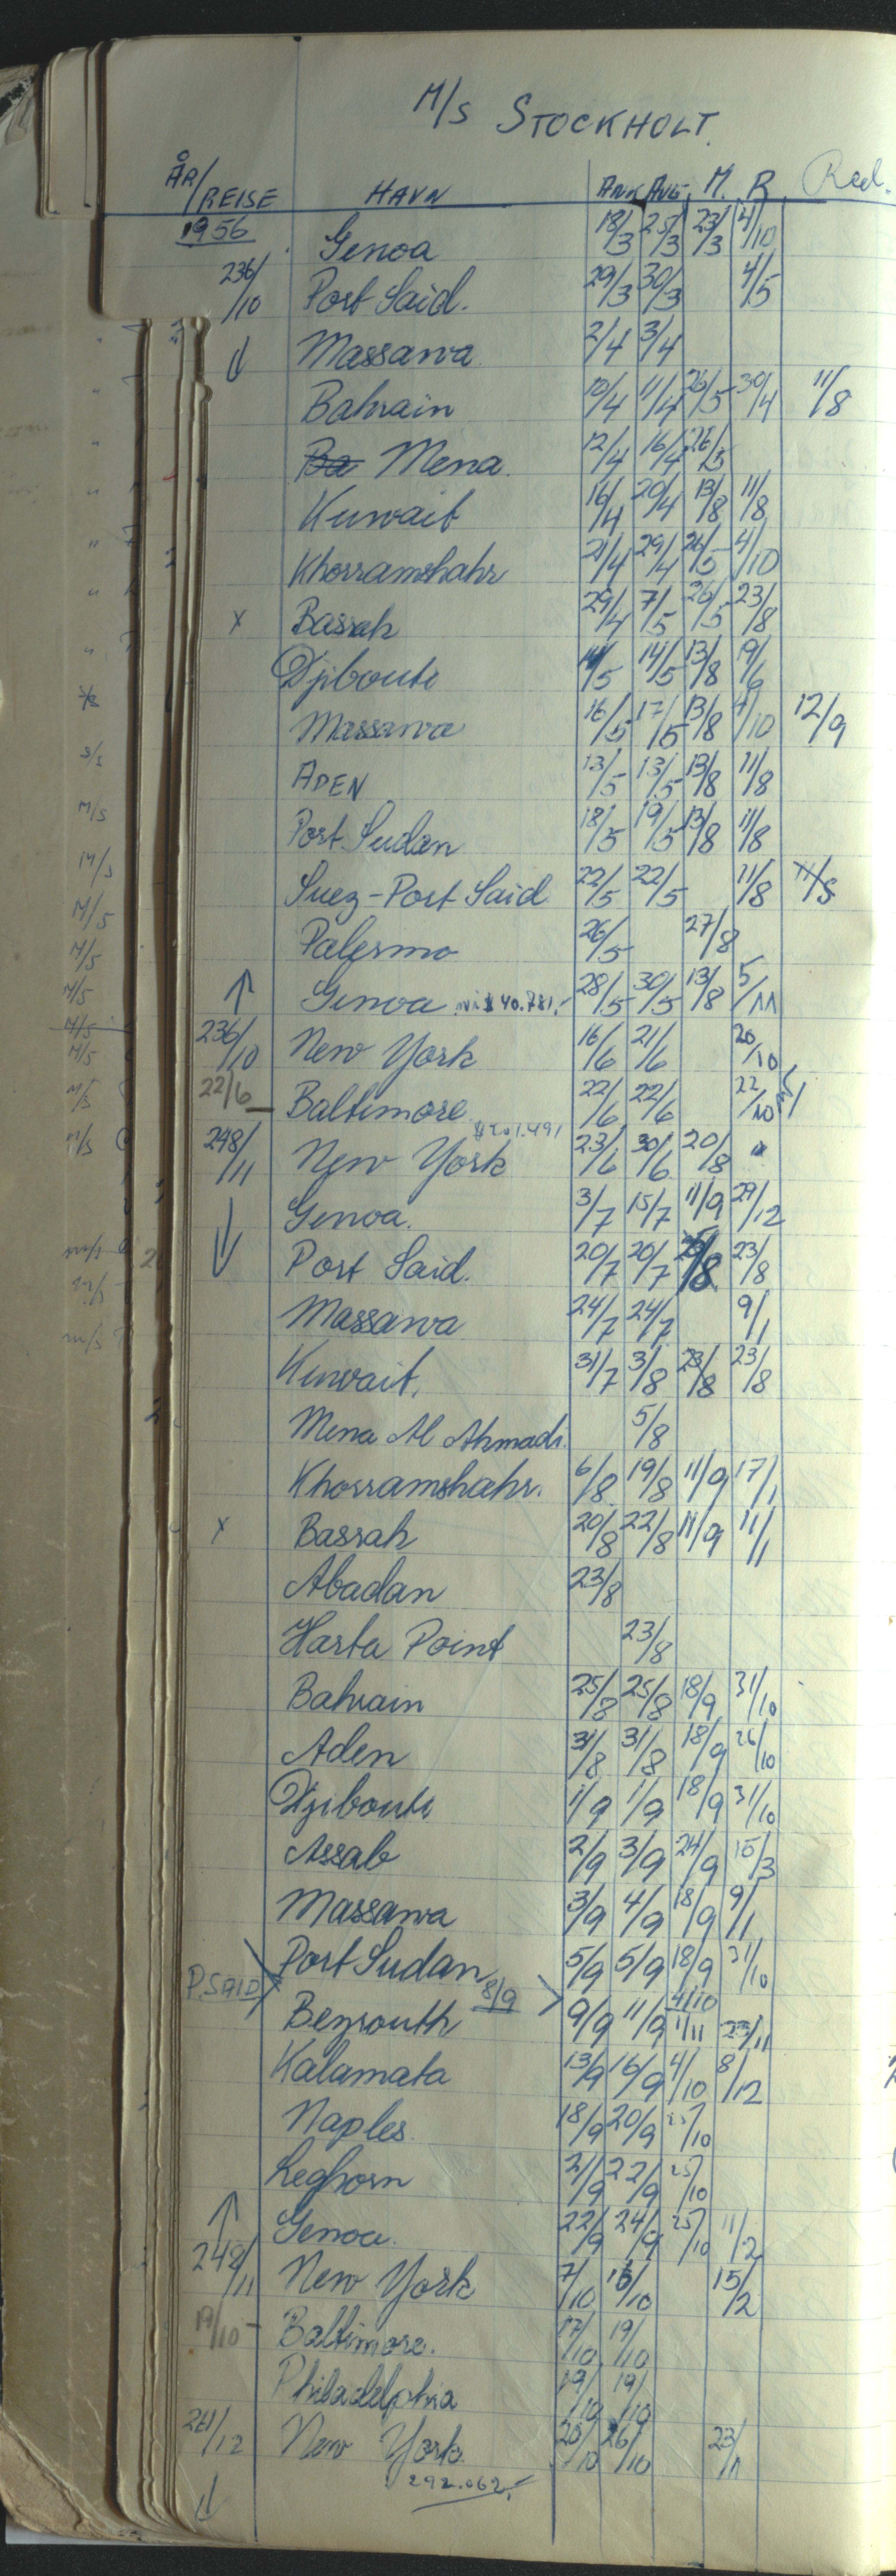 M/S STOCKHOLT.
ÅR/REISE HAVN ANK AVG. M. R. Red.
1956 Genoa 18/3 25/3 23/3 4/10
236/10 Port Said. 29/3 30/3 4/5
↓ Massawa 2/4 3/4
Bahrain 10/4 11/4 26/5 30/4 11/8
Ba Mena. 12/4 16/4 26/5
Kuwait 16/4 20/4 13/8 11/8
Khorramshahr 21/4 29/4 26/5 4/10
x Basrah 29/4 7/5 26/5 23/8
Djibouti 14/5 14/5 13/8 19/6
Massawa 16/5 17/5 13/8 4/10 12/9
ADEN 13/5 13/5 13/8 11/8
Port Sudan 18/5 19/5 13/8 11/8
Suez-Port Said 22/5 22/5 11/8 11/8
Palermo 26/5 27/8
↑ Genoa $40.781,- 28/5 30/5 13/8 5/11
236/10 New York 16/6 21/6 20/10
22/6 Baltimore 22/6 22/6 22/10
$201.491
248/11 New York 23/6 30/6 20/8 "
Genoa. 3/7 15/7 11/9 29/12
↓ Port Said. 20/7 20/7 /8 23/8
Massawa 24/7 24/7 9/1
Kuwait. 31/7 3/8 23/8 23/8
Mena Al Ahmadi. 5/8
Khorramshahr. 6/8 19/8 11/9 17/1
x Basrah 20/8 22/8 11/9 11/1
Abadan 23/8
Harta Point 23/8
Bahrain 25/8 25/8 18/9 31/10
Aden 31/8 31/8 18/9 26/10
Djibouti 1/9 1/9 18/9 31/10
Assab 2/9 3/9 24/9 15/3
Massawa 3/9 4/9 18/9 9/1
Port Sudan 5/9 5/9 18/9 31/10
P.SAID 8/9 > 4/10
Beyrouth 9/9 11/9 1/11 23/11
Kalamata 13/9 16/9 4/10 8/12
Naples. 18/9 20/9 25/10
Leghorn 21/9 22/9 25/10
↑ Genoa. 22/9 24/9 25/10 11/2
248/11 New York 7/10 16/10 15/2
19/10 - Baltimore. 17/10 19/10
Philadelphia 19/10 19/10
261/12 New York. 20/10 26/10 23/1
↓ 292.062,-